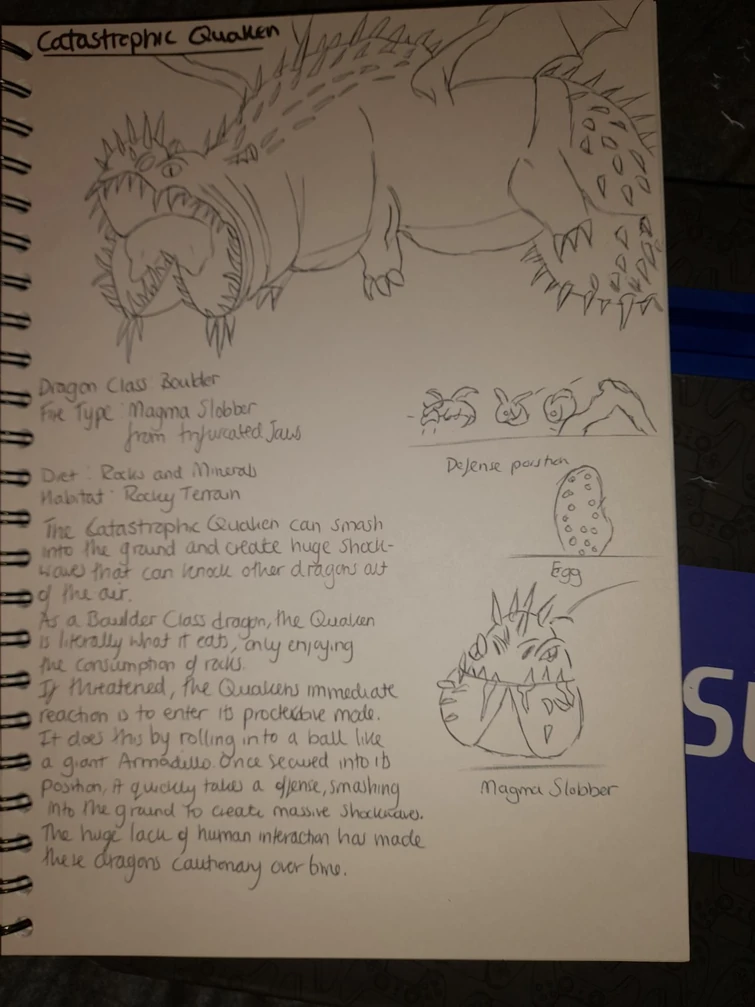 Catastrophic Quaken
Dragon Class Boulder
Fire Type : Magma Slobber
from trifurcated Jaws
Diet : Rocks and Minerals
Habitat : Rocky Terrain
The Catastrophic Quaken can smash
into the ground and create huge shock-
waves that can knock other dragons out
of the air.
As a Boulder Class dragon, the Quaken
is literally what it eats, only enjoying
the consumption of rocks.
If threatened, the Quakens immediate
reaction is to enter its mode.
It does this by rolling into a ball like
a giant Armadillo. Once secured into its
position, it quickly takes a offense, smashing
into the ground to create massive shockwaves.
The huge lack of human interaction has made
these dragons cautionary over time.
Defense position
Egg
Magma Slobber